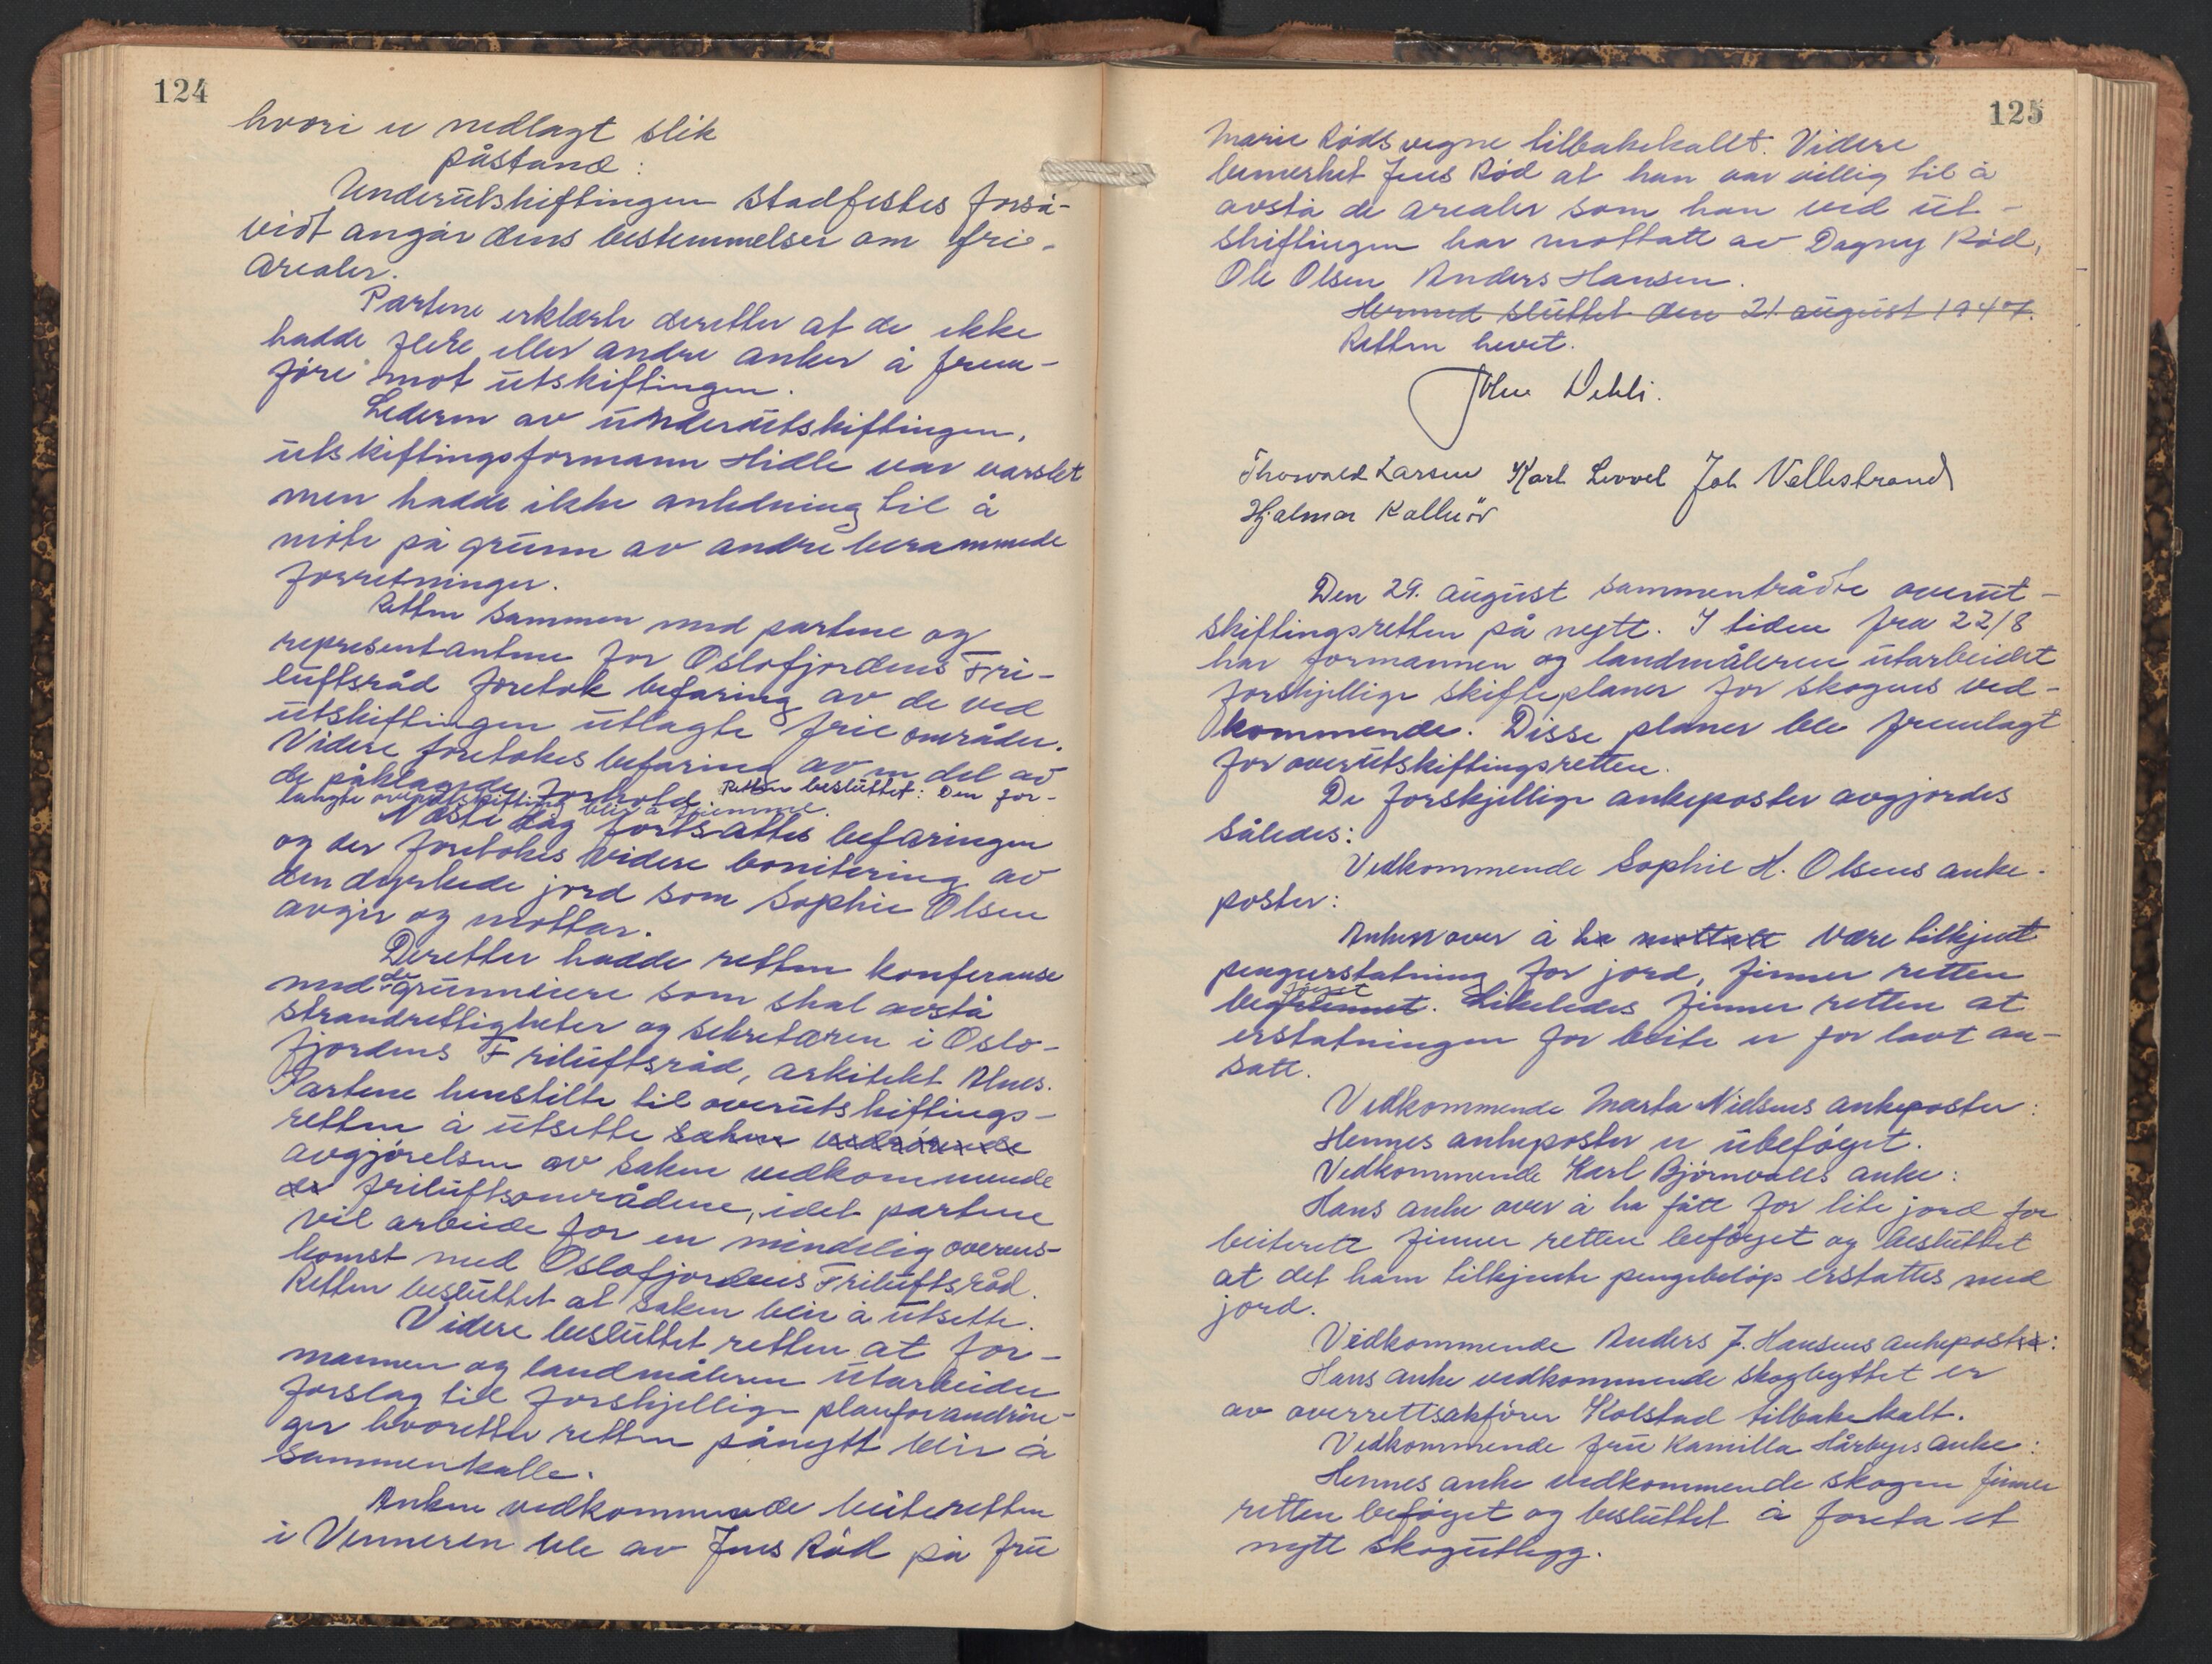 124
hvori er nedlagt slik
påstand:
Underutskiftingen stadfestes forså-
vidt angår dens bestemmelser om fri-
arealer.
Partene erklærte deretter at de ikke
hadde flere eller andre anker å frem-
føre mot utskiftingen.
Lederen av underutskiftingen,
utskiftingsformann Hidle var varslet
men hadde ikke anledning til å
møte på grunn av andre berammede
forretninger.
Retten sammen med partene og
representantene for Oslofjordens Fri-
luftsråd foretok befaring av de ved
utskiftingen utlagte frie områder.
Videre foretokes befaring av en del av
de påklagede forhold. Retten besluttet: Den for-
langte overutskifting blir å fremme.
Neste dag fortsattes befaringen
og der foretokes videre bonitering av
den dyrkede jord som Sophie Olsen
avgir og mottar.
Deretter hadde retten konferanse
med de grunneiere som skal avstå
strandrettigheter og sekretæren i Oslo-
fjordens Friluftsråd, arkitekt Alnes.
Partene henstilte til overutskiftings-
retten å utsette saken vedrørende
avgjørelsen av saken vedkommende
de friluftsområdene, idet partene
vil arbeide for en mindelig overens-
komst med Oslofjordens Friluftsråd.
Retten besluttet at saken blir å utsette.
Videre besluttet retten at for-
mannen og landmåleren utarbeider
forslag til forskjellige planforandrin-
ger hvoretter retten pånytt blir å
sammenkalle.
Anken vedkommende beiteretten
i Venneren ble av Jens Rød på fru
125
Marie Røds vegne tilbakekallt. Videre
bemerket Jens Rød at han var villig til å
avstå de arealer som han ved ut-
skiftingen har mottatt av Dagny Rød,
Ole Olsen Anders Hansen.
Hermed sluttet den 21 august 1947.
Retten hevet.
John Dehli.
Thorvald Larsen Karl Lervel Joh Vellestrand
Hjalmar Kalluẍr
Den 29. august sammentrådte overut-
skiftingsretten på nytt. I tiden fra 22/8
har formannen og landmåleren utarbeidet
forskjellige skifteplaner for skogens ved-
kommende. Disse planer ble fremlagt
for overutskiftingsretten.
De forskjellige ankeposter avgjordes
således:
Vedkommende Sophie H. Olsens anke-
poster:
Anken over å ha mottatt være tilkjent
pengeerstatning for jord, finner retten
beføiet. Likeledes finner retten at
erstatningen for beite er for lavt an-
satt.
Vedkommende Marta Nielsens ankeposter:
Hennes ankeposter er ubeføyet.
Vedkommende Karl Bjørnvalls anke:
Hans anke over å ha fått for lite jord for
beiterett finner retten beføyet og besluttet
at det ham tilkjente pengebeløp erstattes med
jord.
Vedkommende Anders J. Hansens ankeposter:
Hans anke vedkommende skogbyttet er
av overrettsakfører Kolstad tilbakekalt.
Vedkommende fru Kamilla Hårbyes anke:
Hennes anke vedkommende skogen finner
retten beføyet og besluttet å foreta et
nytt skogutlegg.